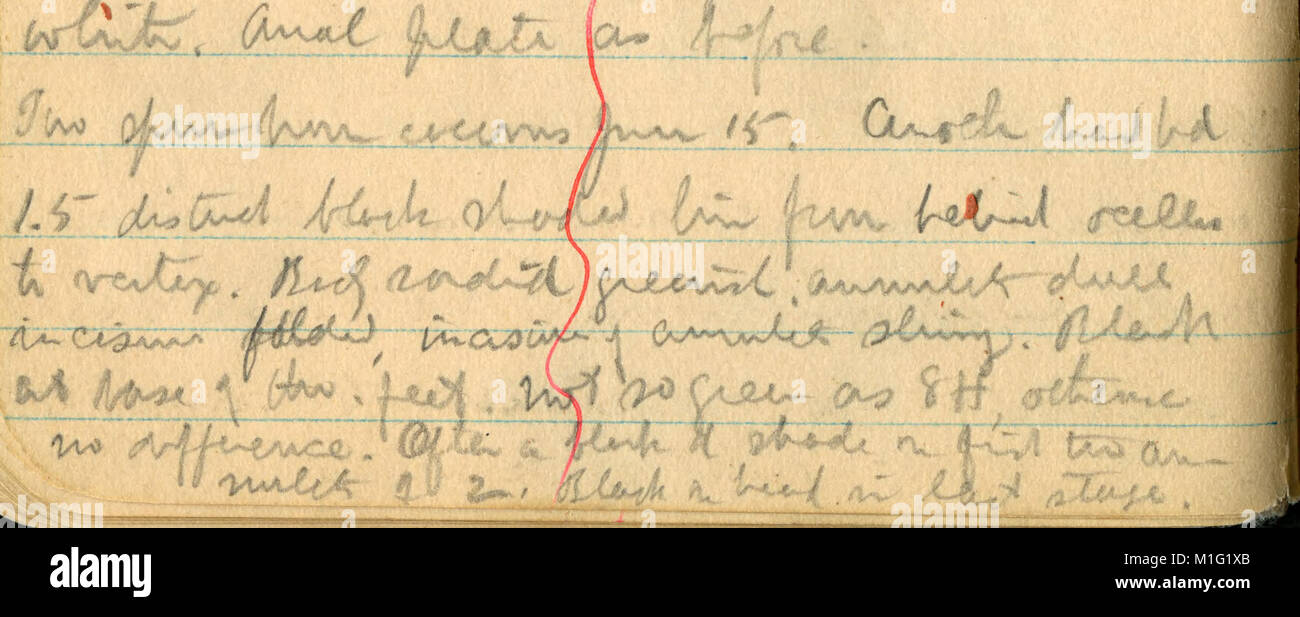 white. Anal plate as before.
Two spun from cocoons June 15. Another head
1.5 distinct black shaded line from behind ocellus
to vertex. Body sordid greenish, annulet dull
incisure folded, incisure of annulet shiny. Black
at base of tho. feet. Not so green as 8H,
no difference. Often a black shade on first two an-
nulets of 2. Black on head in last stage.
alamy
Image ID: M1G1XB
www.alamy.com